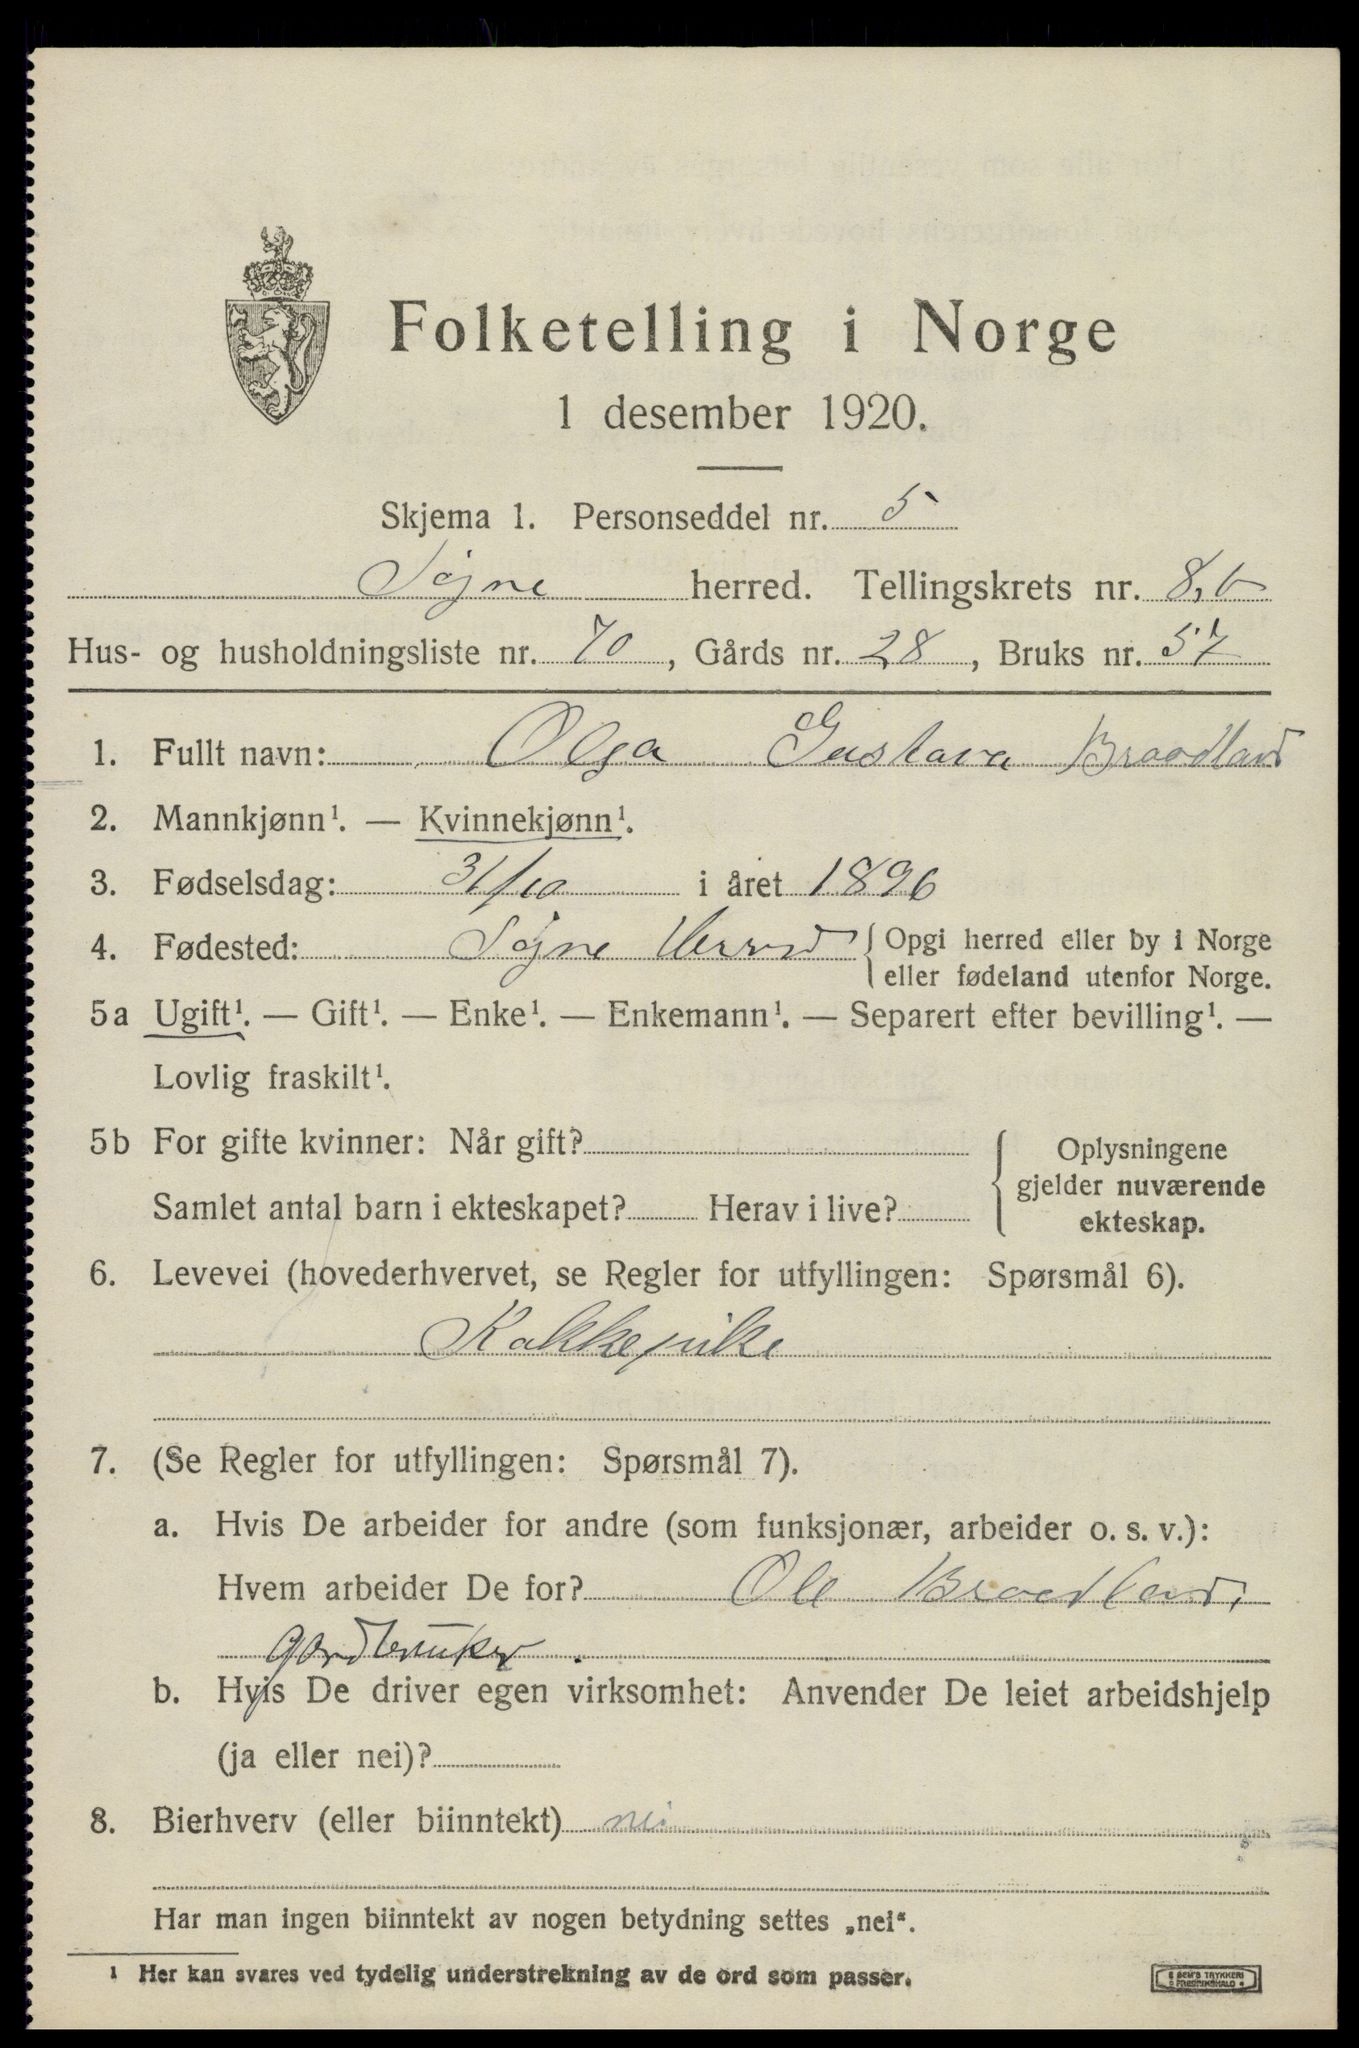 Folketelling i Norge
1 desember 1920.
Skjema 1. Personseddel nr. 5
Søgne herred. Tellingskrets nr. 8,b
Hus- og husholdningsliste nr. 70, Gårds nr. 28, Bruks nr. 57
1. Fullt navn: Olga Gustava Braadland
2. Mannkjønn¹. — Kvinnekjønn¹.
3. Fødselsdag: 31/10 i året 1896
4. Fødested: Søgne Herred { Opgi herred eller by i Norge
eller fødeland utenfor Norge.
5a Ugift¹. — Gift¹. — Enke¹. — Enkemann¹. — Separert efter bevilling¹. —
Lovlig fraskilt¹.
5b For gifte kvinner: Når gift?
Samlet antal barn i ekteskapet? Herav i live?
Oplysningene
gjelder nuværende
ekteskap.
6. Levevei (hovederhvervet, se Regler for utfyllingen: Spørsmål 6).
Kokkepike
7. (Se Regler for utfyllingen: Spørsmål 7).
a. Hvis De arbeider for andre (som funksjonær, arbeider o. s. v.):
Hvem arbeider De for? Ole Braadland,
gardbruker.
b. Hvis De driver egen virksomhet: Anvender De leiet arbeidshjelp
(ja eller nei)?
8. Bierhverv (eller biinntekt) nei
Har man ingen biinntekt av nogen betydning settes „nei“.
¹ Her kan svares ved tydelig understrekning av de ord som passer.
E SEM'S TRYKKERI
FREDRIKSHALD